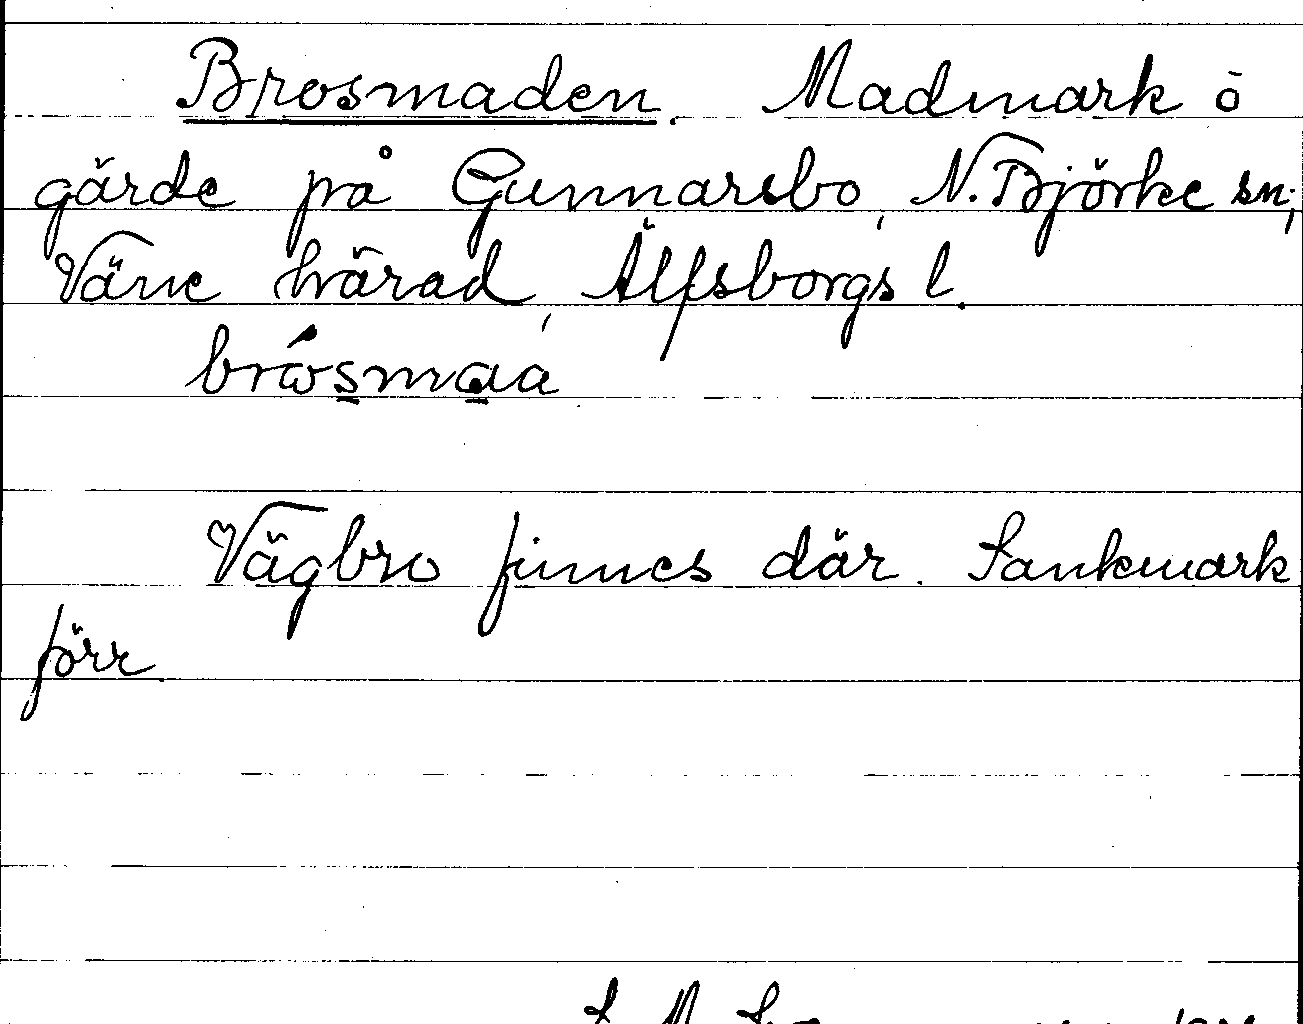 Brosmaden. Madmark o
gärde på Gunnarsbo, N. Björke sn;
Väne härad, Älfsborgs l.
brósmaa
Vägbro finnes där. Sankmark
förr.